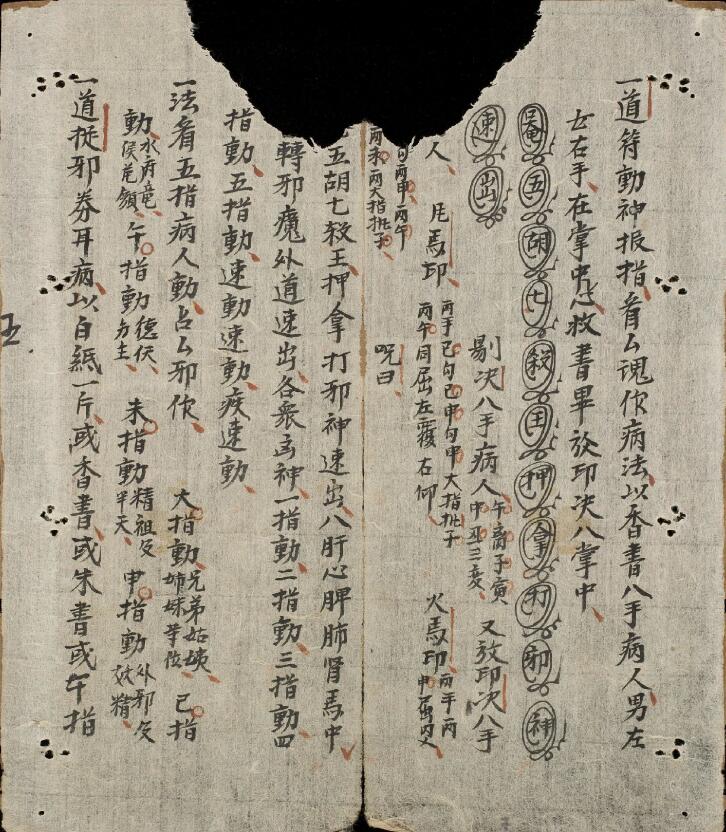 一道符動神报指、看厶魂作病法、以香書八手病人男左
女右手、在掌中心、敇書畢放印决八掌中、
奄五胡七殺王押拿打邪神
速出 剔决八手病人 午离子寅 又放印决八手
人、 馬印、 丙手己勾己申勾申大指
丙午同屈左覆右仰、 火馬印 丙手丙
勾丙申、丙午
丙未丙大指 咒曰、
五胡七殺王押拿打邪神速出、八肝心脾肺腎馬中
轉邪魔外道速出、各衆神一指動、二指動、三指動四
指動、五指動、速動速動、疾速動、
一法看五指病人動、占厶邪作、 大指動、 兄弟姑姨 姉妹等位、 己指
動、 水府竜、 午指動 未指動 精祖父 半天、 申指動 外邪
一道捉邪券耳病、以白紙一斤、或香書、或朱書或午指
五